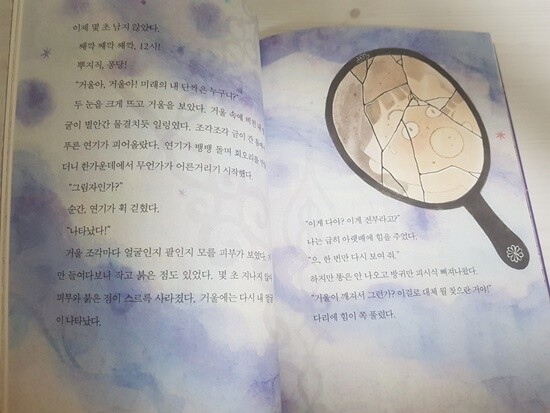 이제 몇 초 남지 않았다.
째깍 째깍 째깍, 12시!
뿌지직, 콩당!
"거울아, 거울아! 미래의 내 단짝은 누구니?"
두 눈을 크게 뜨고 거울을 보았다. 거울 속에 비친 내
굴이 벌얀간 물결치듯 일렁였다. 조각조각 금이 간 틈에
푸른 연기가 피어올랐다. 연기가 뱅뱅 돌며 회오리를
더니 한가운데에서 무언가가 어른거리기 시작했다.
"그림자인가?"
순간, 연기가 휙 걷혔다.
"나타났다!"
거울 조각마다 얼굴인지 팔인지 모를 피부가 보였다.
만 들여다보니 작고 붉은 점도 있었다. 몇 초 지나지
피부와 붉은 점이 스르륵 사라졌다. 거울에는 다시 내
이 나타났다.
"이게 다야? 이게 전부라고?"
나는 급히 아랫배에 힘을 주었다.
"으, 한 번만 다시 보여 줘."
하지만 똥은 안 나오고 방귀만 피시식 빠져나왔다.
"거울이 깨져서 그런가? 이걸로 대체 뭘 찾으란 거야!"
다리에 힘이 쪽 풀렸다.